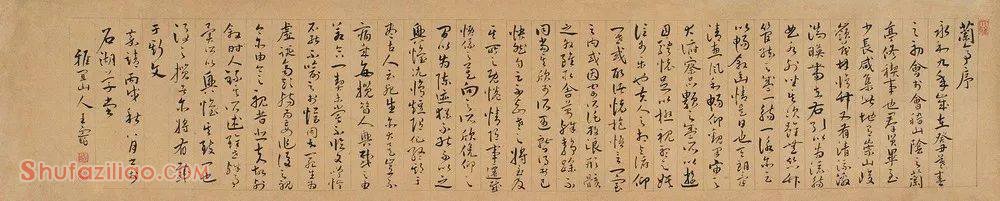 蘭亭序
永和九年歲在癸丑暮春
之初會于會稽山陰之蘭
亭修禊事也羣賢畢至
少長咸集此地有崇山峻
嶺茂林脩竹又有清流激
湍映帶左右引以為流觴
曲水列坐其次雖無絲竹
管絃之盛一觴一詠亦足
以暢敘幽情是日也天朗氣
清惠風和暢仰觀宇宙之
大俯察品類之盛所以遊
目騁懷足以極視聽之娛
信可樂也夫人之相與俯仰
一世或取諸懷抱悟言一室
之內或因寄所託放浪形骸
之外雖趣舍萬殊靜躁不
同當其欣於所遇暫得於己
快然自足不知老之將至及
其所之既倦情隨事遷感
慨係之矣向之所欣俛仰之
間以為陳迹猶不能不以之
興懷況脩短隨化終期於
盡古人云死生亦大矣豈不
痛哉每攬昔人興感之由
若合一契未嘗不臨文嗟悼
不能喻之於懷固知一死生為
虛誕齊彭殤為妄作後之視
今亦由今之視昔悲夫故列
敘時人錄其所述雖世殊事
異所以興懷其致一也
後之攬者亦將有感
於斯文
嘉靖丙戌秋八月
石湖草堂
雅宜山人王寵
Shufaziliao.com